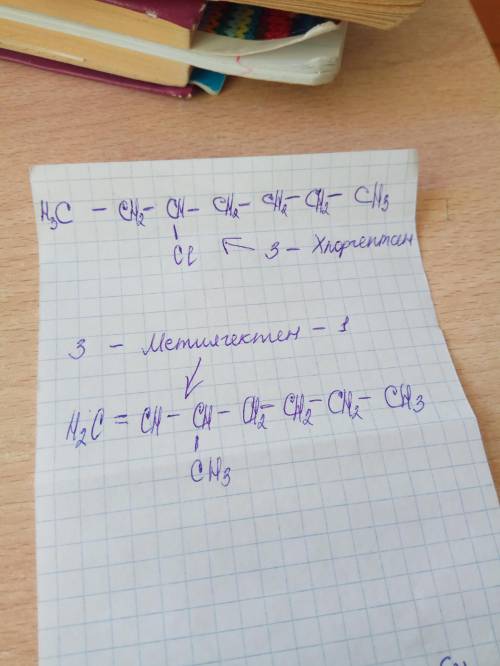 H₃C – CH₂ – CH – CH₂ – CH₂ – CH₂ – CH₃
Cl ← 3 – Хлоргептан
3 – Метилгептен – 1
H₂C = CH – CH – CH₂ – CH₂ – CH₂ – CH₃
CH₃